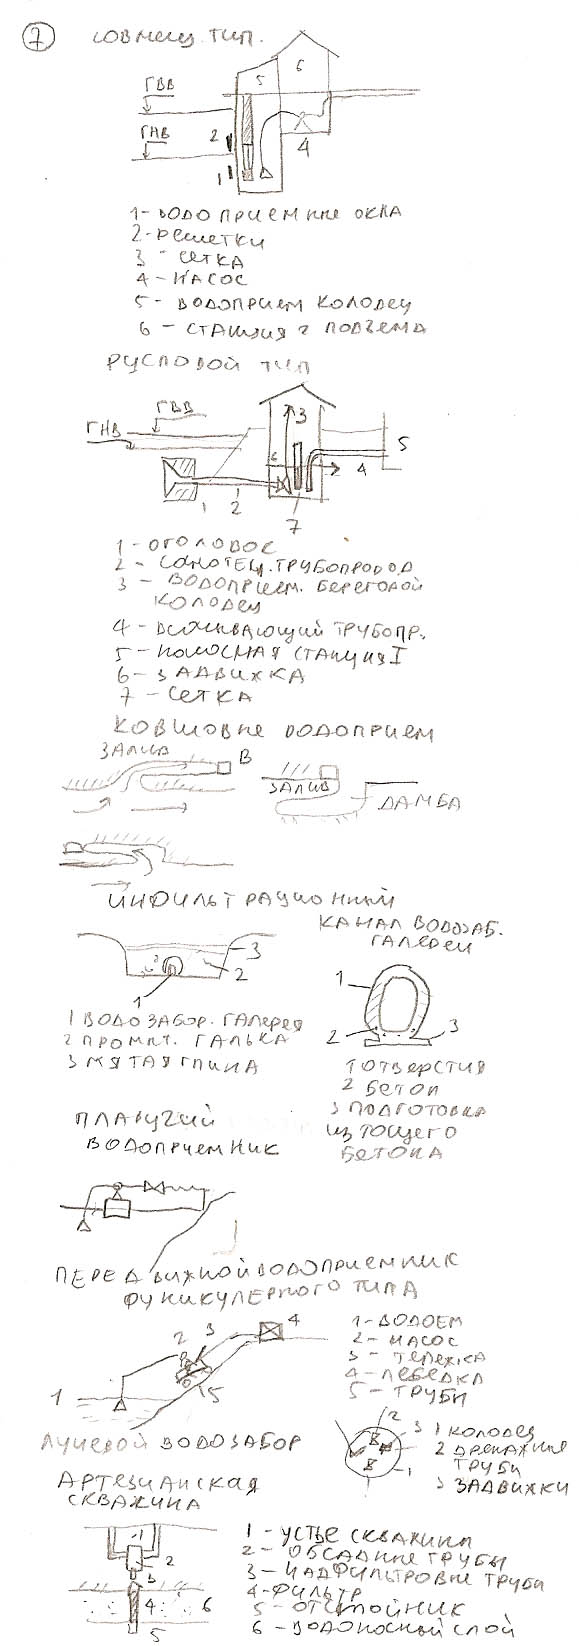 7 СОВМЕЩ. ТИП.
ГВВ
ГНВ
5
6
2
4
1
1 - ВОДОПРИЕМНЫЕ ОКНА
2 - РЕШЕТКИ
3 - СЕТКА
4 - НАСОС
5 - ВОДОПРИЕМ КОЛОДЕЦ
6 - СТАНЦИЯ 2 ПОДЪЕМА
РУСЛОВОЙ ТИП
ГВВ
ГНВ
3
5
6
4
1 2
7
1 - ОГОЛОВОК
2 - САМОТЕЧ. ТРУБОПРОВОД
3 - ВОДОПРИЕМ. БЕРЕГОВОЙ
КОЛОДЕЦ
4 - ВСАСЫВАЮЩИЙ ТРУБОПР.
5 - НАСОСНАЯ СТАНЦИЯ I
6 - ЗАДВИЖКА
7 - СЕТКА
КОВШОВЫЕ ВОДОПРИЕМ
ЗАЛИВ
В
ЗАЛИВ
ДАМБА
ИНФИЛЬТРАЦИОННЫЙ
КАНАЛ ВОДОЗАБ.
ГАЛЕРЕИ
3
2
1
1
2
3
1 ВОДОЗАБОР. ГАЛЕРЕЯ
2 ПРОМЫТ. ГАЛЬКА
3 МЯТАЯ ГЛИНА
1 ОТВЕРСТИЯ
2 БЕТОН
3 ПОДГОТОВКА
ИЗ ТОЩЕГО
БЕТОНА
ПЛАВУЧИЙ
ВОДОПРИЕМНИК
ПЕРЕДВИЖНОЙ ВОДОПРИЕМНИК
ФУНИКУЛЕРНОГО ТИПА
2
3
4
5
1
1 - ВОДОЕМ
2 - НАСОС
3 - ТЕЛЕЖКА
4 - ЛЕБЕДКА
5 - ТРУБЫ
ЛУЧЕВОЙ ВОДОЗАБОР
2
3
1
1 КОЛОДЕЦ
2 ДРЕНАЖНЫЕ
ТРУБЫ
3 ЗАДВИЖКИ
АРТЕЗИАНСКАЯ
СКВАЖИНА
1
2
3
4
6
5
1 - УСТЬЕ СКВАЖИНЫ
2 - ОБСАДНЫЕ ТРУБЫ
3 - НАДФИЛЬТРОВЫЕ ТРУБЫ
4 - ФИЛЬТР
5 - ОТСТОЙНИК
6 - ВОДОНОСНЫЙ СЛОЙ